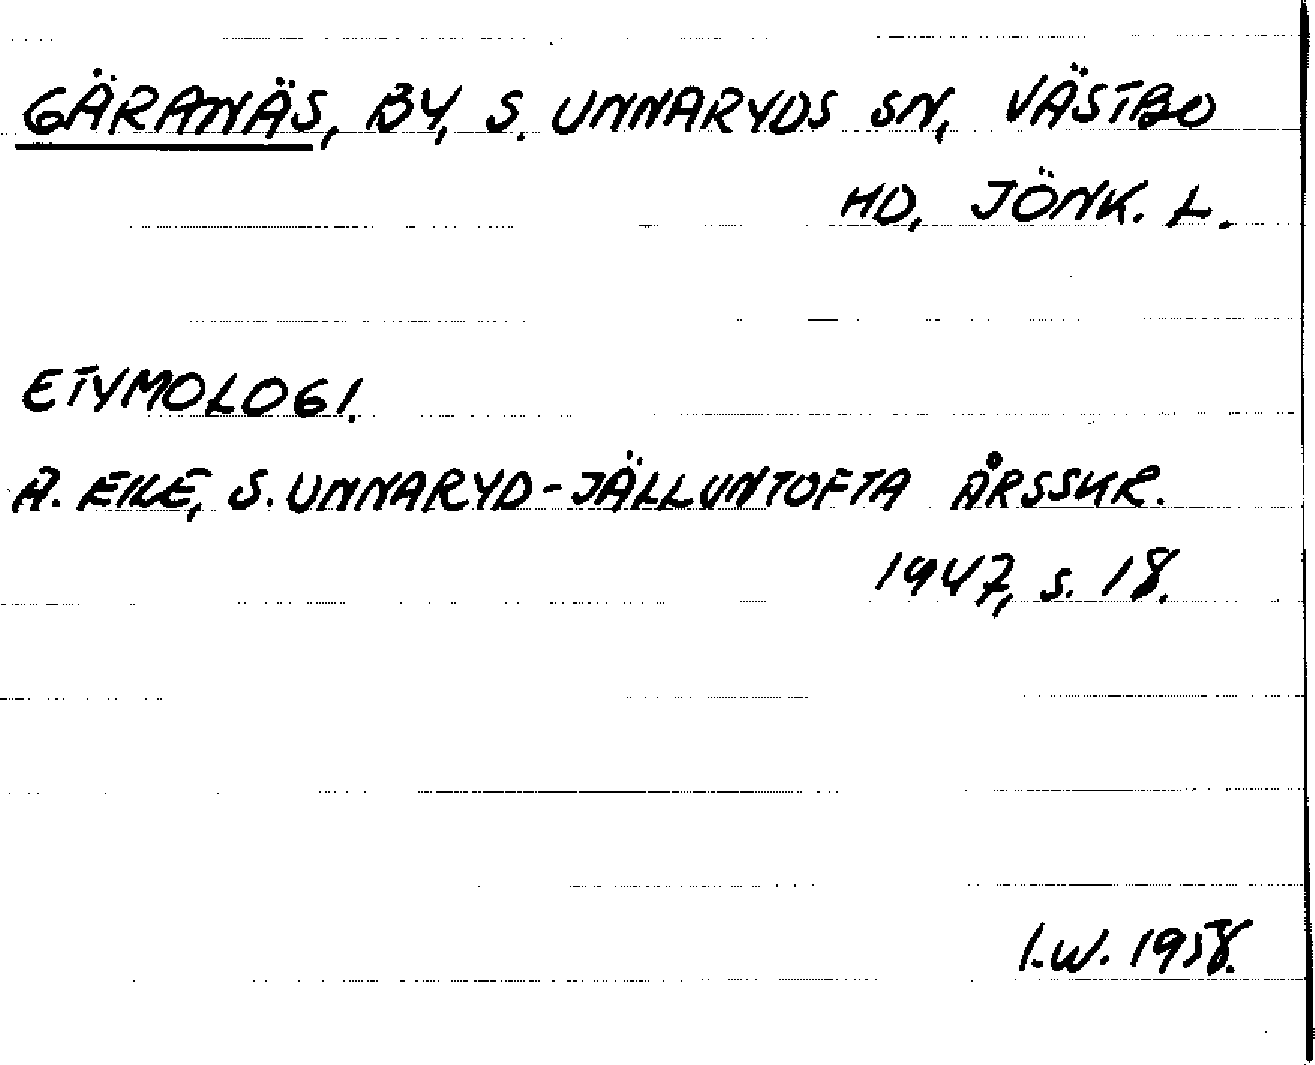 GÄRANÄS, BY, S. UNNARYDS SN, VÄSTBO
HD, JÖNK. L.
ETYMOLOGI.
A. EKE, S. UNNARYD-JÄLLUNTOFTA ÅRSSKR.
1947, s. 18.
I.W. 1958.